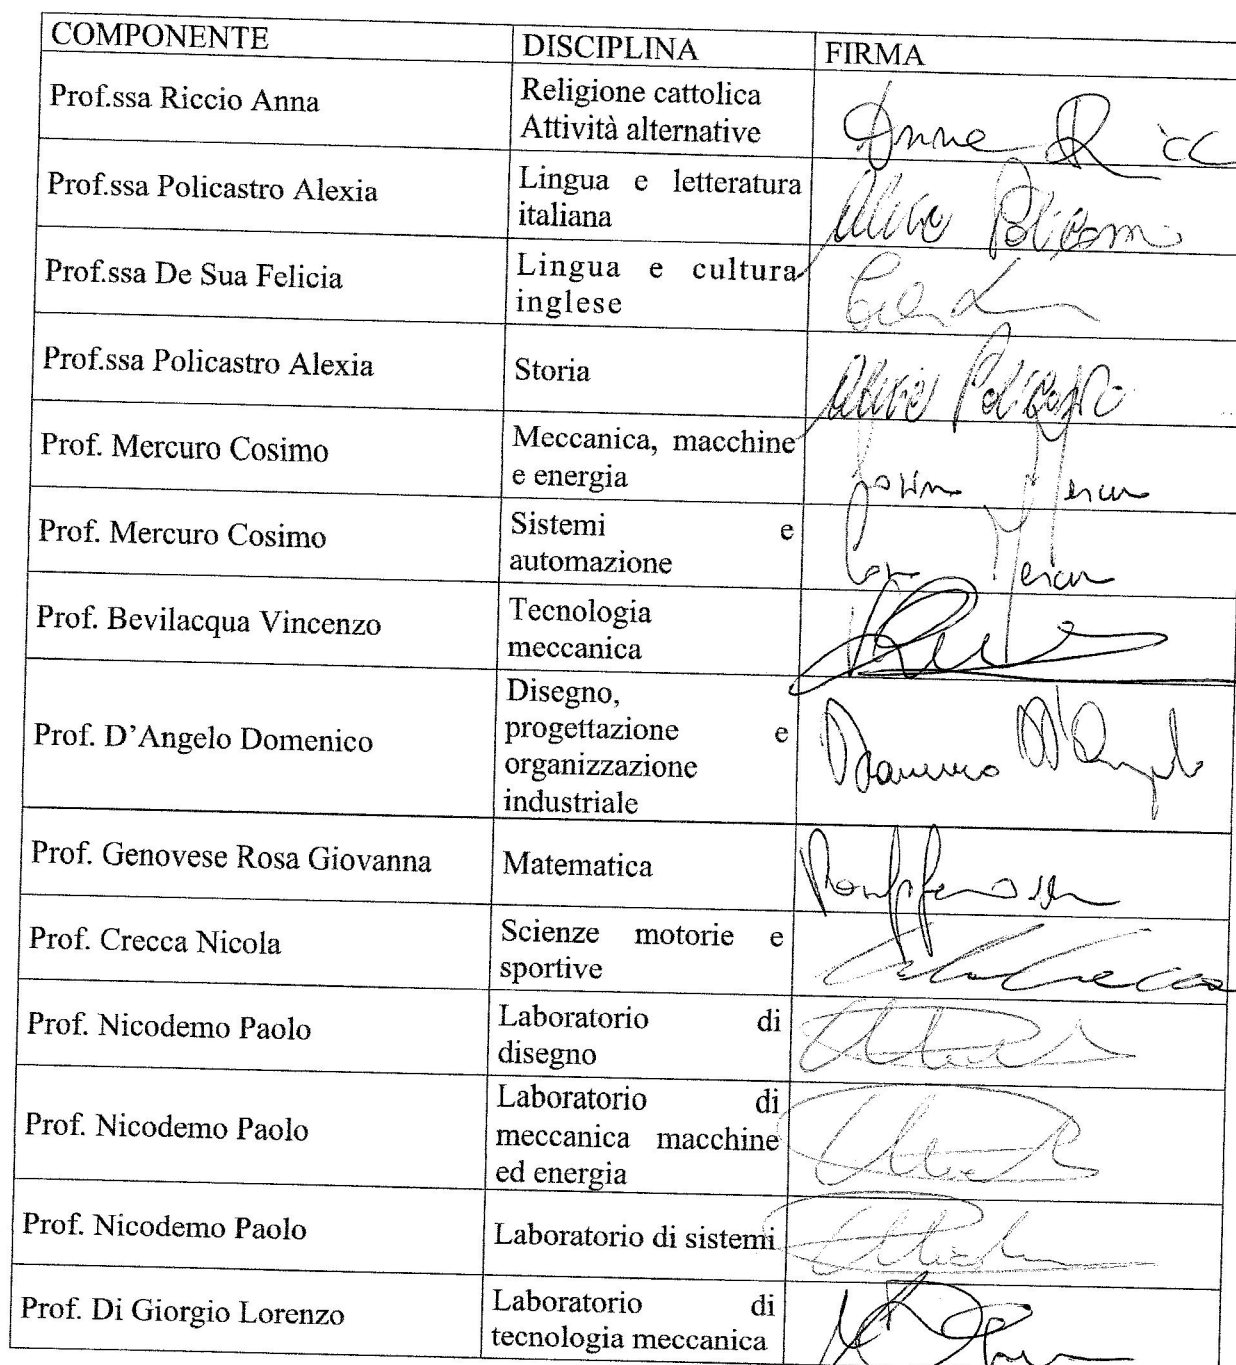 COMPONENTE DISCIPLINA FIRMA
Prof.ssa Riccio Anna
Religione cattolica
Attività alternative
Anna Ricc
Prof.ssa Policastro Alexia
Lingua e letteratura
italiana
Prof.ssa De Sua Felicia
Lingua e cultura
inglese
Prof.ssa Policastro Alexia
Storia
Prof. Mercuro Cosimo
Meccanica, macchine
e energia
Prof. Mercuro Cosimo
Sistemi e
automazione
Prof. Bevilacqua Vincenzo
Tecnologia
meccanica
Prof. D'Angelo Domenico
Disegno,
progettazione e
organizzazione
industriale
D'Angelo
Prof. Genovese Rosa Giovanna
Matematica
Prof. Crecca Nicola
Scienze motorie e
sportive
Prof. Nicodemo Paolo
Laboratorio di
disegno
Prof. Nicodemo Paolo
Laboratorio di
meccanica macchine
ed energia
Prof. Nicodemo Paolo
Laboratorio di sistemi
Prof. Di Giorgio Lorenzo
Laboratorio di
tecnologia meccanica